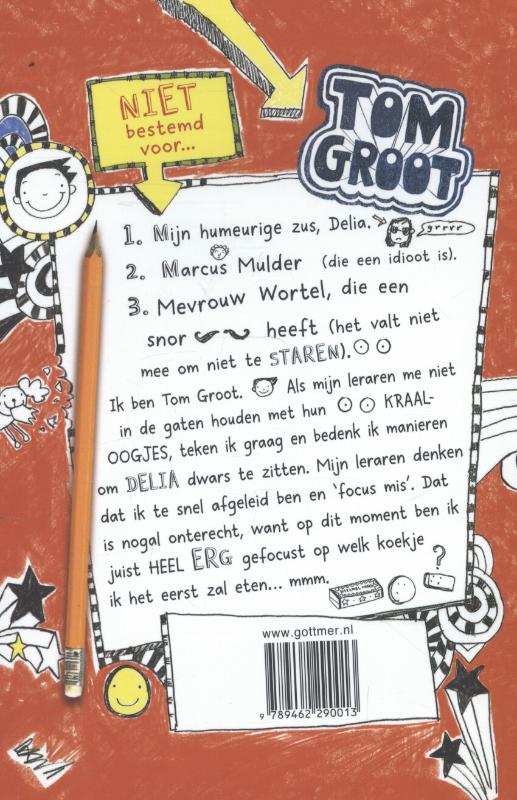 NIET
bestemd
voor...
TOM
GROOT
1. Mijn humeurige zus, Delia.
grrrr
2. Marcus Mulder (die een idioot is).
3. Mevrouw Wortel, die een
snor heeft (het valt niet
mee om niet te STAREN).
Ik ben Tom Groot. Als mijn leraren me niet
in de gaten houden met hun KRAAL-
OOGJES, teken ik graag en bedenk ik manieren
om DELIA dwars te zitten. Mijn leraren denken
dat ik te snel afgeleid ben en 'focus mis'. Dat
is nogal onterecht, want op dit moment ben ik
juist HEEL ERG gefocust op welk koekje
ik het eerst zal eten... mmm.
?
www.gottmer.nl
9 789462 290013